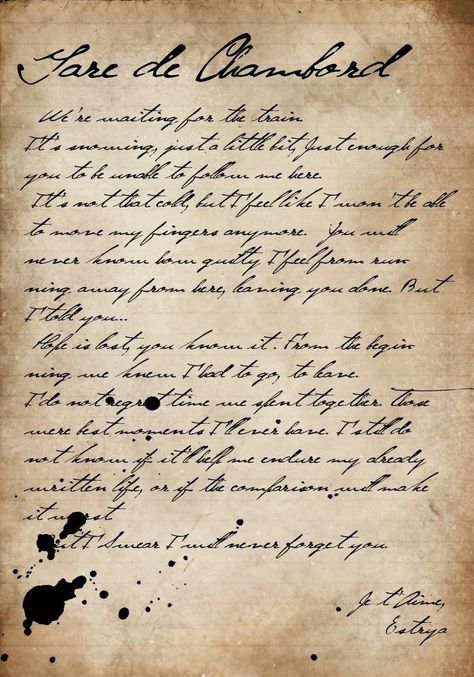 Gare de Chambord
We're waiting for the train
It's snowing, just a little bit, Just enough for
you to be unable to follow me here.
It's not that cold, but I feel like I won't be able
to move my fingers anymore. You will
never know how guilty I feel from run
ning away from here, leaving you alone. But
I told you...
Hope is lost, you know it. From the begin
ning we knew I had to go, to leave.
I do not regret time we spent together. Those
were best moments I'll ever have. I still do
not know if it'll help me endure my already
written life, or if the comparison will make
it worst
But I Swear I will never forget you.
Je t'Aime,
Estrya